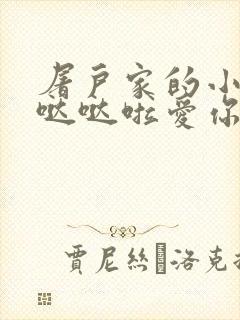 屠戶家的小
哒哒啦爱你
賈尼絲 洛克